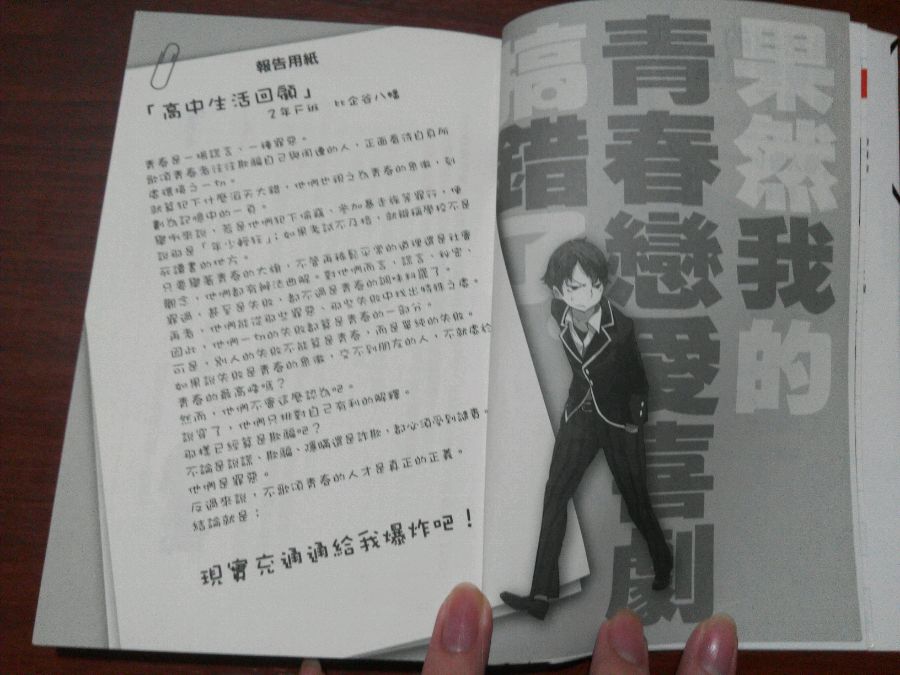 報告用紙
「高中生活回顧」
2年F班　比企谷八幡
青春是一場謊言，一種罪惡。
歌頌青春者往往欺騙自己與周遭的人，正面看待自身所
處環境之一切。
就算犯下什麼滔天大錯，他們也視之為青春的象徵，刻
劃為記憶中的一頁。
舉例來說，若是他們犯下偷竊、參加暴走族等罪行，便
說那是「年少輕狂」；如果考試不及格，就辯稱學校不是
死讀書的地方。
只要舉著青春的大旗，不管再稀鬆平常的道理還是社會
觀念，他們都有辦法曲解。對他們而言，謊言、秘密、
罪過，甚至是失敗，都不過是青春的調味料罷了。
再者，他們能從那些罪惡、那些失敗中找出特殊之處。
因此，他們一切的失敗都算是青春的一部分。
可是，別人的失敗不能算是青春，而是單純的失敗。
如果說失敗是青春的象徵，交不到朋友的人，不就處於
青春的最高峰嗎？
然而，他們不會這麼認為吧。
說穿了，他們只挑對自己有利的解釋。
那樣已經算是欺騙吧？
不論是說謊、欺騙、隱瞞還是詐欺，都必須受到譴責。
他們是罪惡。
反過來說，不歌頌青春的人才是真正的正義。
結論就是：
現實充通通給我爆炸吧！
果然我的
青春戀愛喜劇
搞錯了